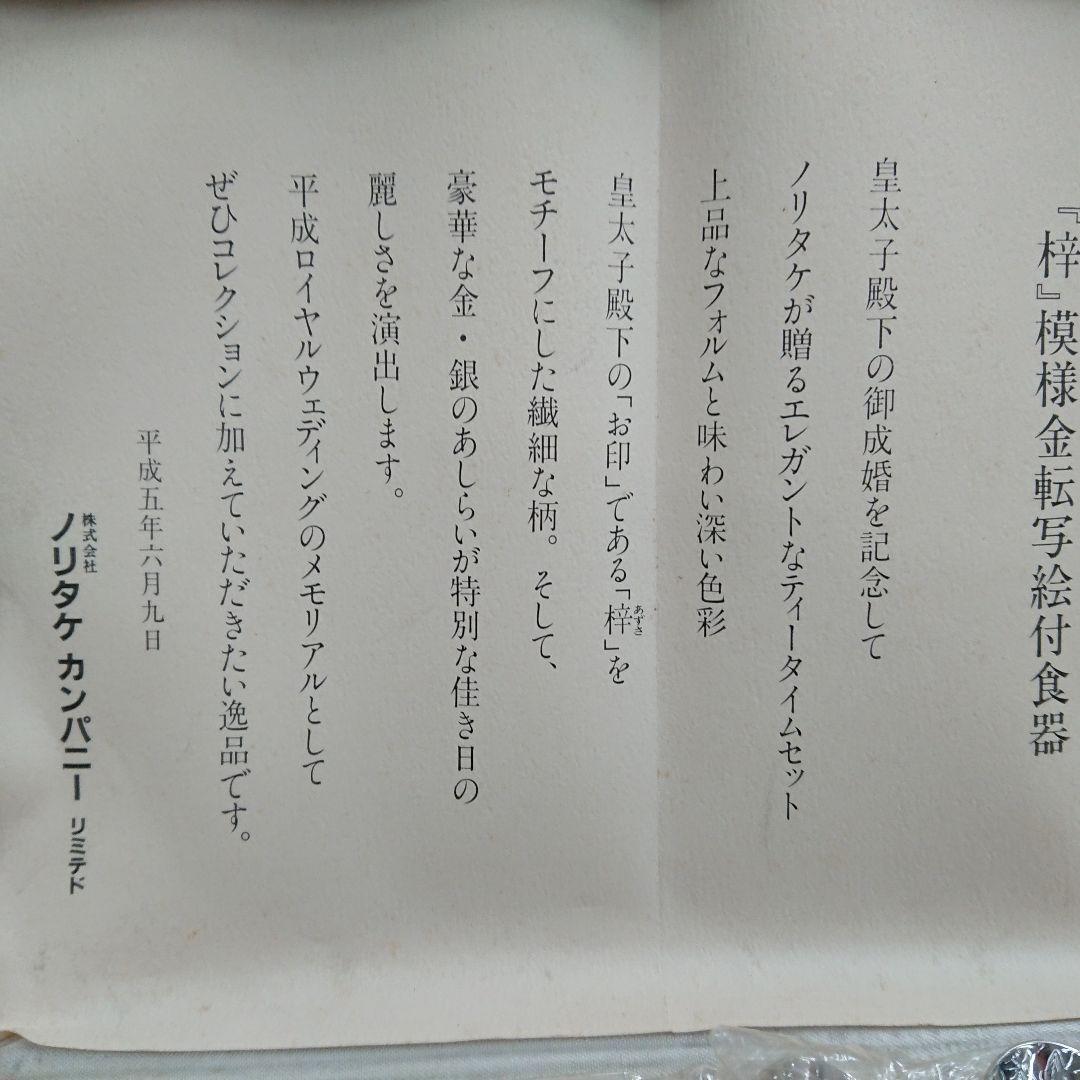 『梓』模様金転写絵付食器
皇太子殿下の御成婚を記念して
ノリタケが贈るエレガントなティータイムセット
上品なフォルムと味わい深い色彩
皇太子殿下の「お印」である「梓」を
あずさ
モチーフにした繊細な柄。そして、
豪華な金・銀のあしらいが特別な佳き日の
麗しさを演出します。
平成ロイヤルウェディングのメモリアルとして
ぜひコレクションに加えていただきたい逸品です。
平成五年六月九日
株式会社
ノリタケ カンパニー リミテド